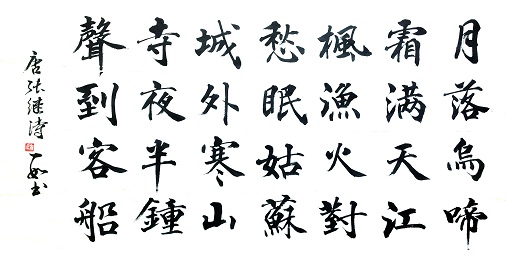 月落烏啼
霜满天江
楓漁火對
愁眠姑蘇
城外寒山
寺夜半鐘
聲到客船
唐张继诗
一如书